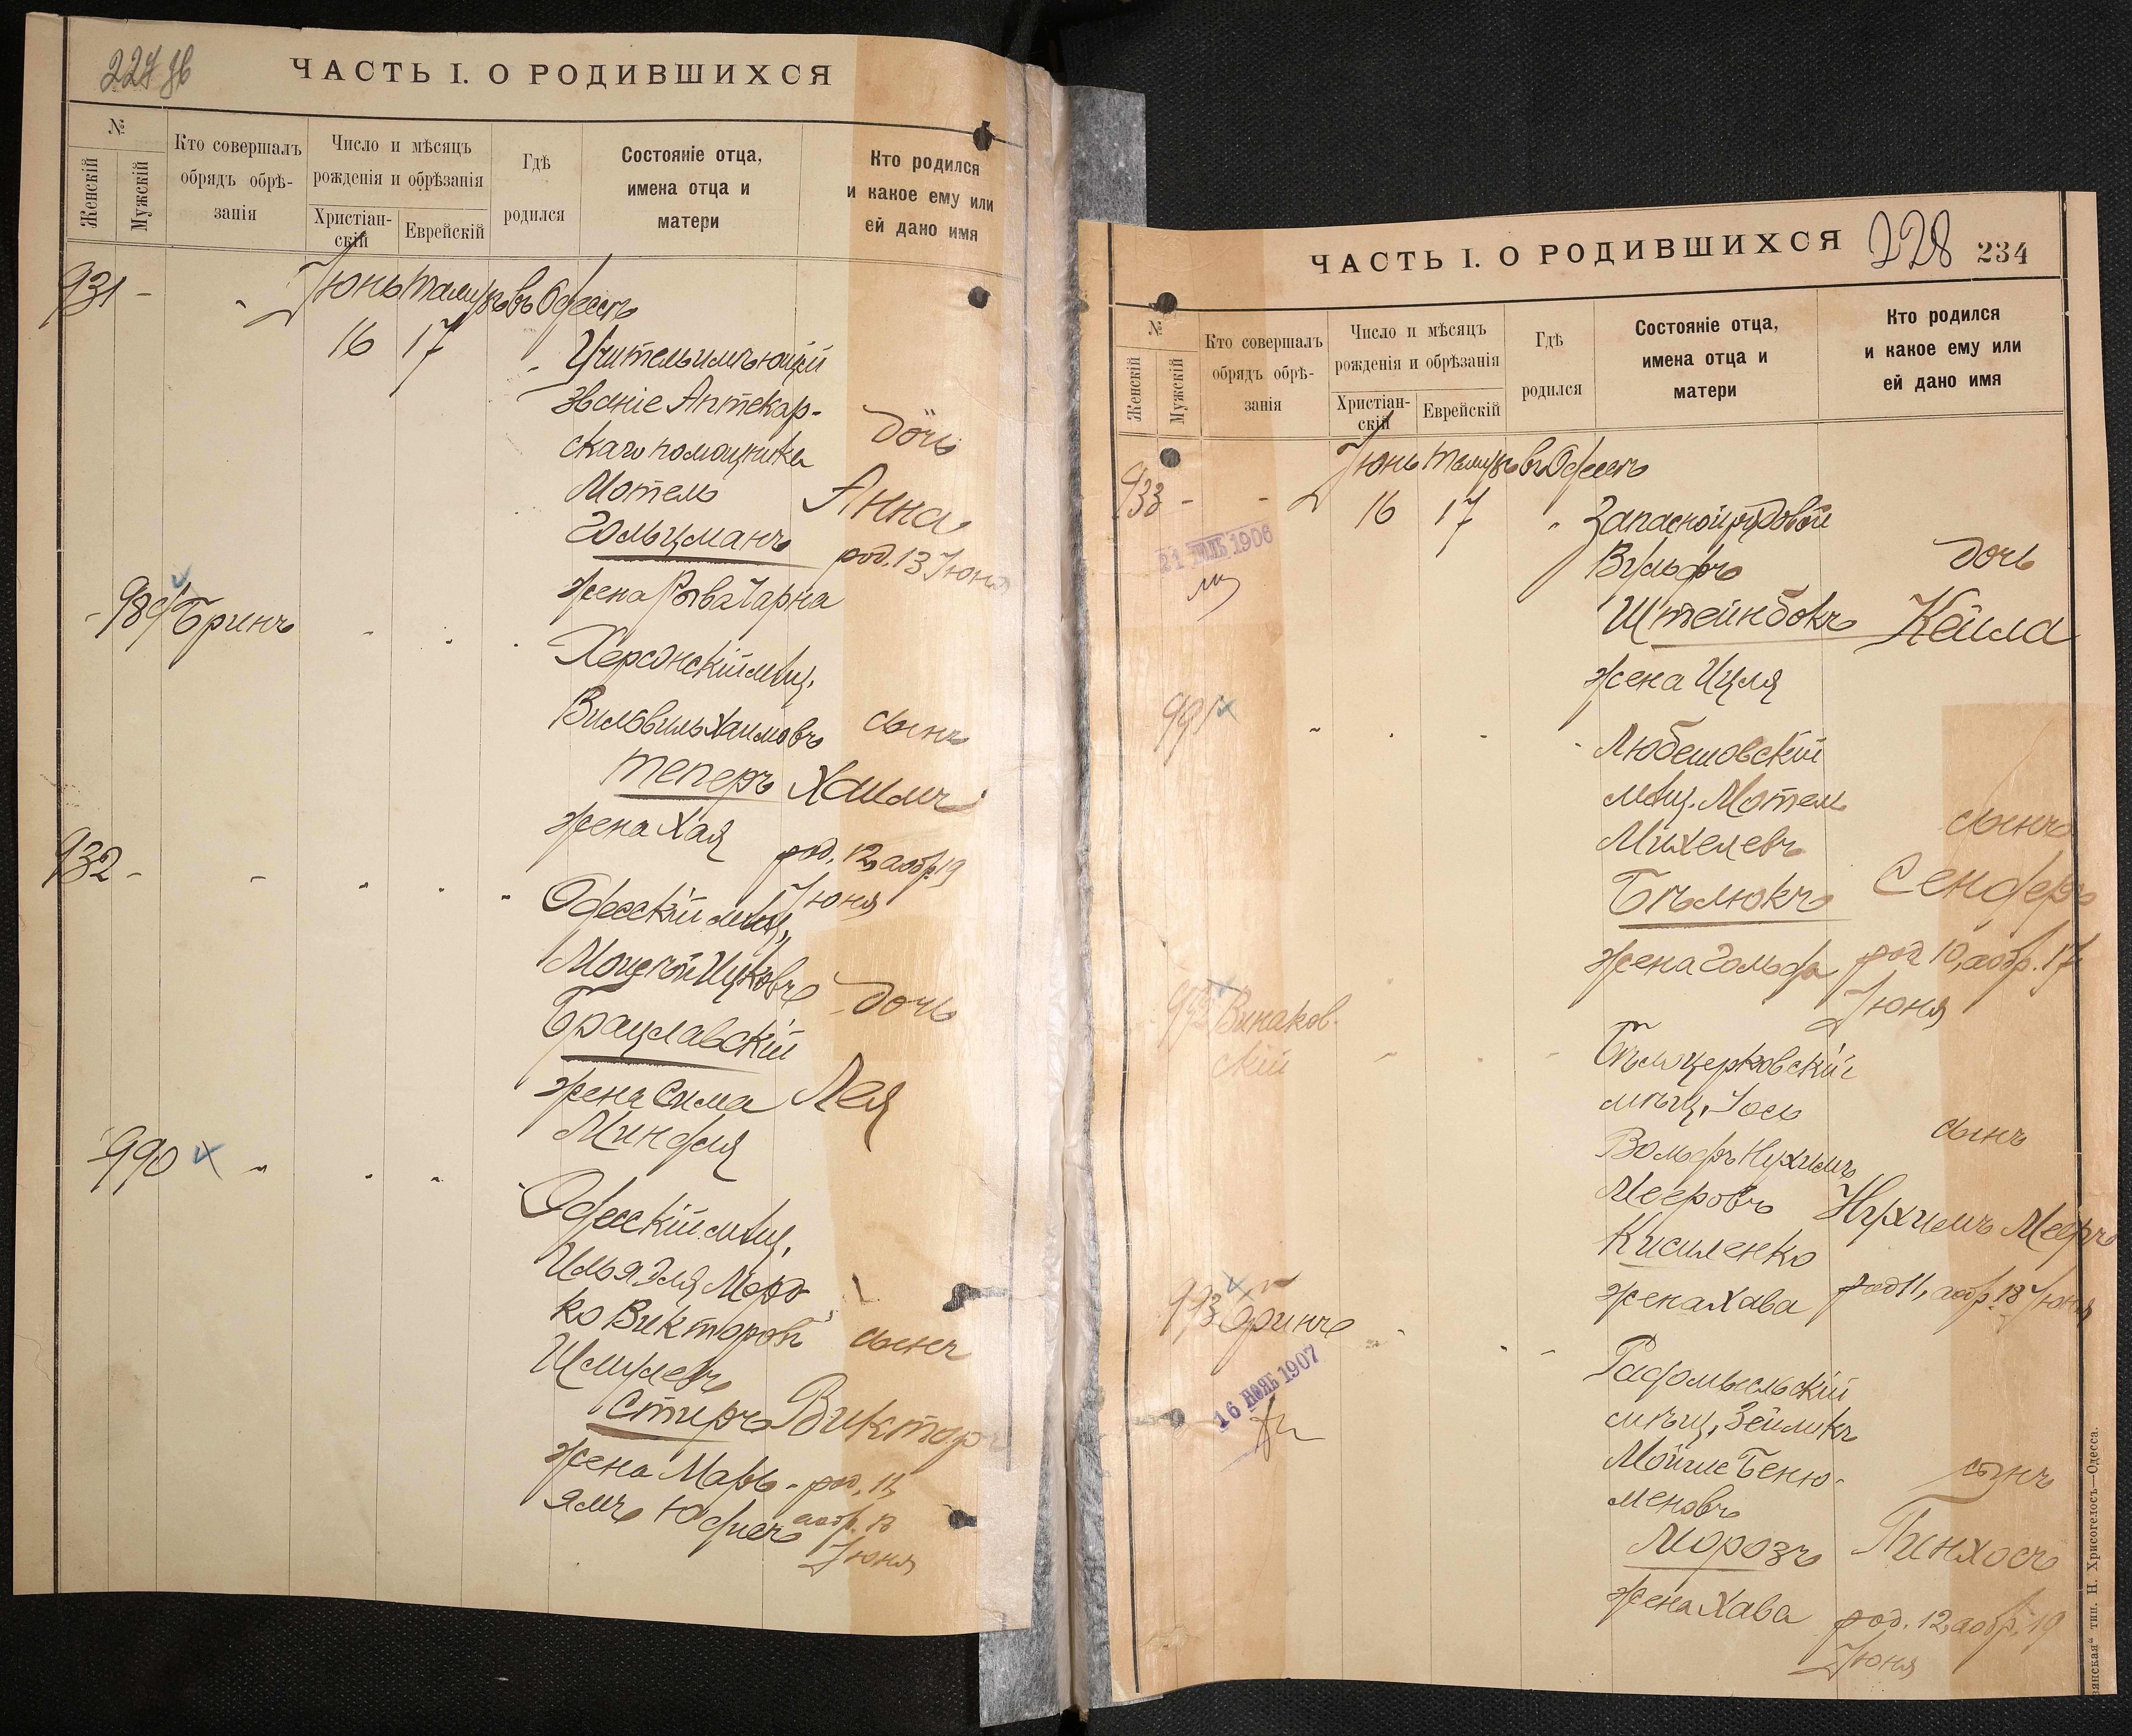 ЧАСТЬ I. О РОДИВШИХСЯ
№
Женскій
Мужскій
Кто совершалъ
обрядъ обрѣ-
занія
Число и мѣсяцъ
рожденія и обрѣзанія
Христіан-
скій
Еврейскій
Гдѣ
родился
Состояніе отца,
имена отца и
матери
Кто родился
и какое ему или
ей дано имя
931 -
Іюнь Тамузъ въ Одессѣ
16 17
Учитель имѣющій
званіе Аптекар-
скаго помощника
Мотель
Гольцманъ
жена Рыва Чарна
дочь
Анна
род. 13 Іюня
989 Бринъ
Херсонскій мѣщ.
Вильвиль Хаимовъ
Теперъ
жена Хая
сынъ
Хаимъ
род. 12, аобр. 19
Іюня
932 -
Одесскій мѣщ.
Браславскій
жена Сима
Миндля
дочь
Лея
990
Одесскій мѣщ.
Илья Эля Мордко
ко Викторовъ
Шмулевъ
Стиръ
жена Марь-
ямъ Юдифь
сынъ
Викторъ
род. 11,
аобр. 18
Іюня
ЧАСТЬ I. О РОДИВШИХСЯ
228
234
№
Женскій
Мужскій
Кто совершалъ
обрядъ обрѣ-
занія
Число и мѣсяцъ
рожденія и обрѣзанія
Христіан-
скій
Еврейскій
Гдѣ
родился
Состояніе отца,
имена отца и
матери
Кто родился
и какое ему или
ей дано имя
933 -
Іюнь Тамузъ въ Одессѣ
16 17
21 ІЮЛЬ 1906
Запасной рядовой
Вульфъ
Штейнбокъ
жена Цуля
дочь
Кейла
991
Любешовскій
мѣщ. Мотель
Михелевъ
Бѣлюкъ
жена Гольда
сынъ
Сендеръ
род 10, аобр. 17
Іюня
992 Винаков-
скій
Бѣлоцерковскій
мѣщ. Іось
Вольфъ Нухимъ
Мееровъ
Кисиленко
жена Хава
сынъ
Нухимъ Мееръ
род 11, аобр. 18 Іюня
993
16 НОЯБ 1907
Радомысльскій
мѣщ. Зейликъ
Мойше Беню-
меновъ
Морозъ
жена Хава
сынъ
Пинхосъ
род. 12, аобр. 19
Іюня
тип. Н. Хрисогелосъ—Одесса.